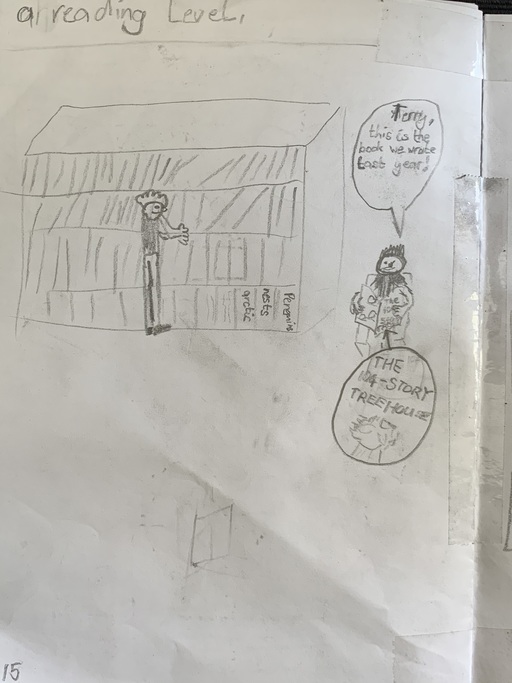 a reading Level.
Terry,
this is the
book we wrote
Last year!
Penguin
nests
arctic
THE
104-STORY
TREEHOUSE
15